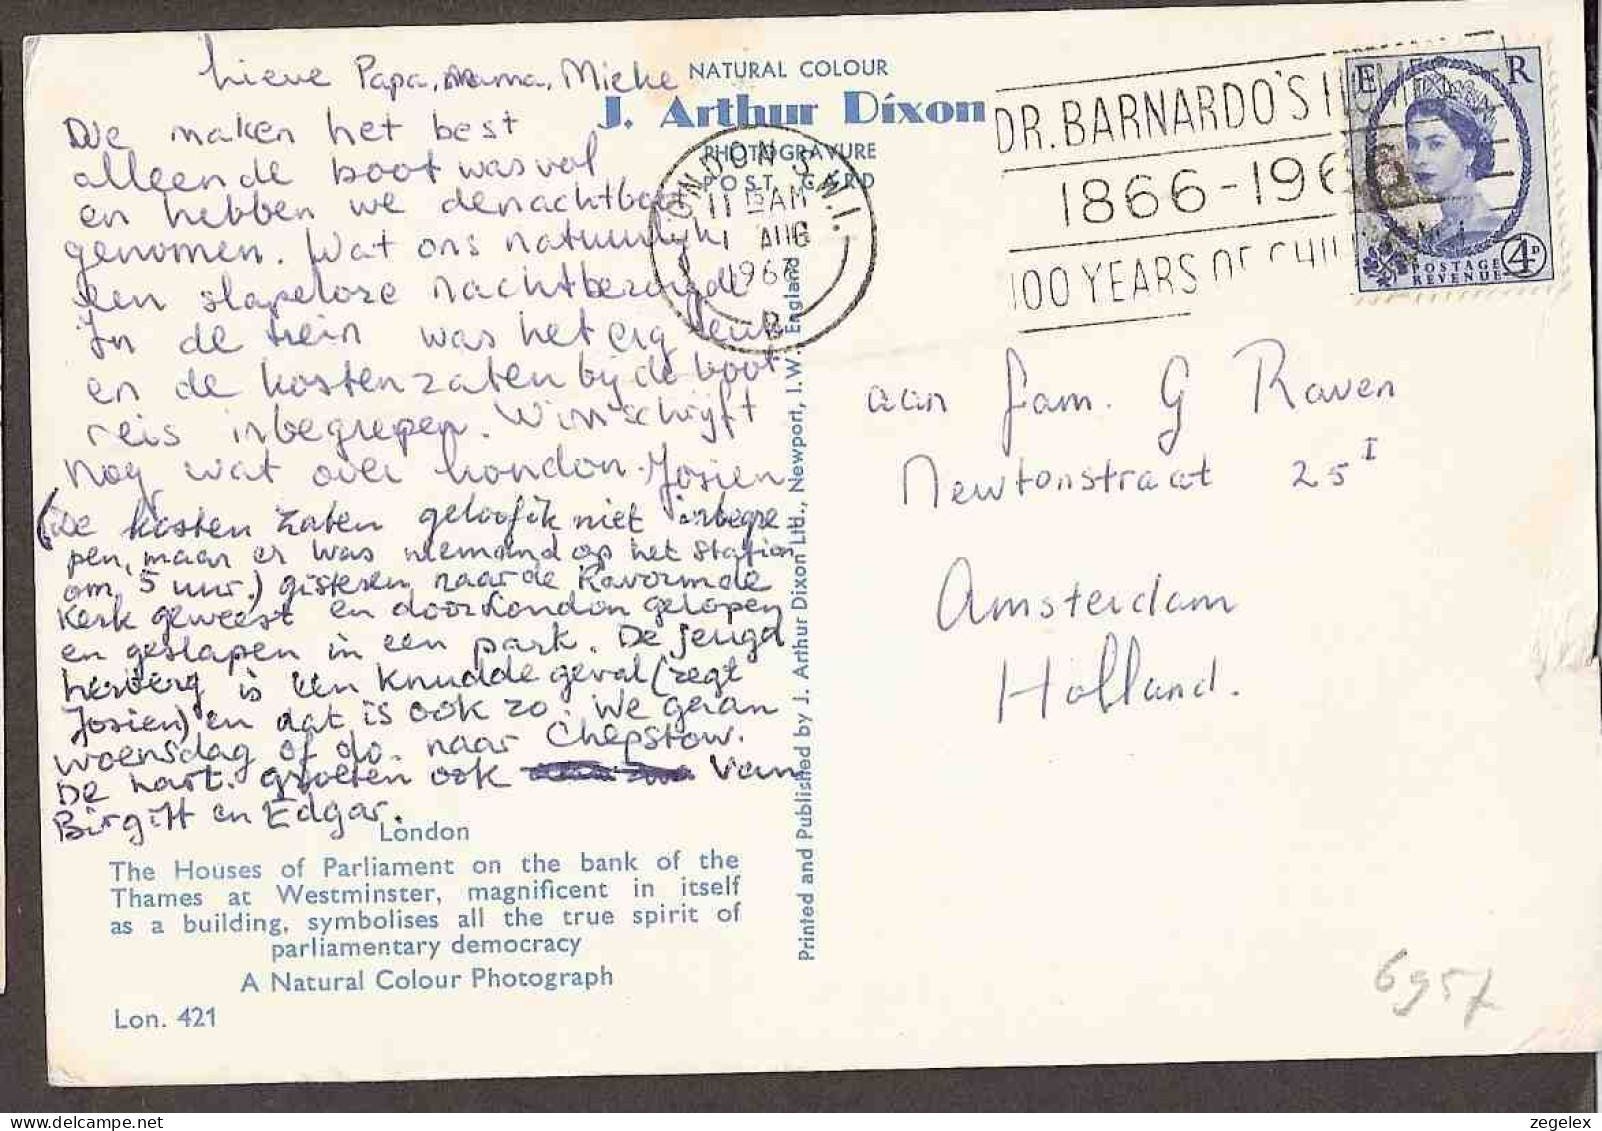 Lieve Papa, mama, Mieke
We maken het best
alleen de boot was vol
en hebben we de nachtboot
genomen. Wat ons natuurlijk
een slapeloze nacht bezorgde
In de trein was het erg leuk
en de kosten zaten bij de boot
reis inbegrepen. Wim schrijft
nog wat over London. Josien
(De kosten zaten geloof ik niet inbegre
pen, maar er was niemand op het station
om 5 uur.) gisteren naar de
Kerk geweest en door London gelopen
en geslapen in een park. De jeugd
herberg is een knudde geval (zegt
Josien) en dat is ook zo. We gaan
woensdag of do. naar Chepstow.
De hart. groeten ook van
Birgitt en Edgar.
London
The Houses of Parliament on the bank of the
Thames at Westminster, magnificent in itself
as a building, symbolises all the true spirit of
parliamentary democracy
A Natural Colour Photograph
Lon. 421
NATURAL COLOUR
J. Arthur Dixon
PHOTOGRAVURE
POST CARD
LONDON S.W.1.
11 15 AM
1 AUG
1967
B
Printed and Published by J. Arthur Dixon Ltd., Newport, I.W., England
DR. BARNARDO'S HOMES
1866-1966
100 YEARS OF CHILD
E R
POSTAGE
REVENUE
4D
aan fam. G Raven
Newtonstraat 25 I
Amsterdam
Holland.
6957
zegelex